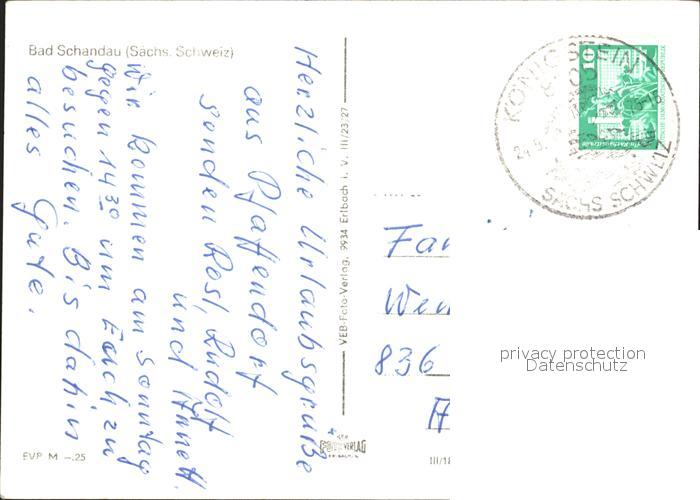 Bad Schandau (Sächs. Schweiz)
Herzliche Urlaubsgrüße
aus Pfaffendorf
senden Rosl, Rudolf
und Annett.
Wir kommen am Sonntag
gegen 14³⁰ um Euch zu
besuchen. Bis dahin
alles Gute.
EVP M –.25
VEB-Foto-Verlag, 9934 Erlbach i. V. III/23/27
VERLAG
III/18
KÖNIGSTEIN
SÄCHS SCHWEIZ
10
Fam
836
privacy protection
Datenschutz